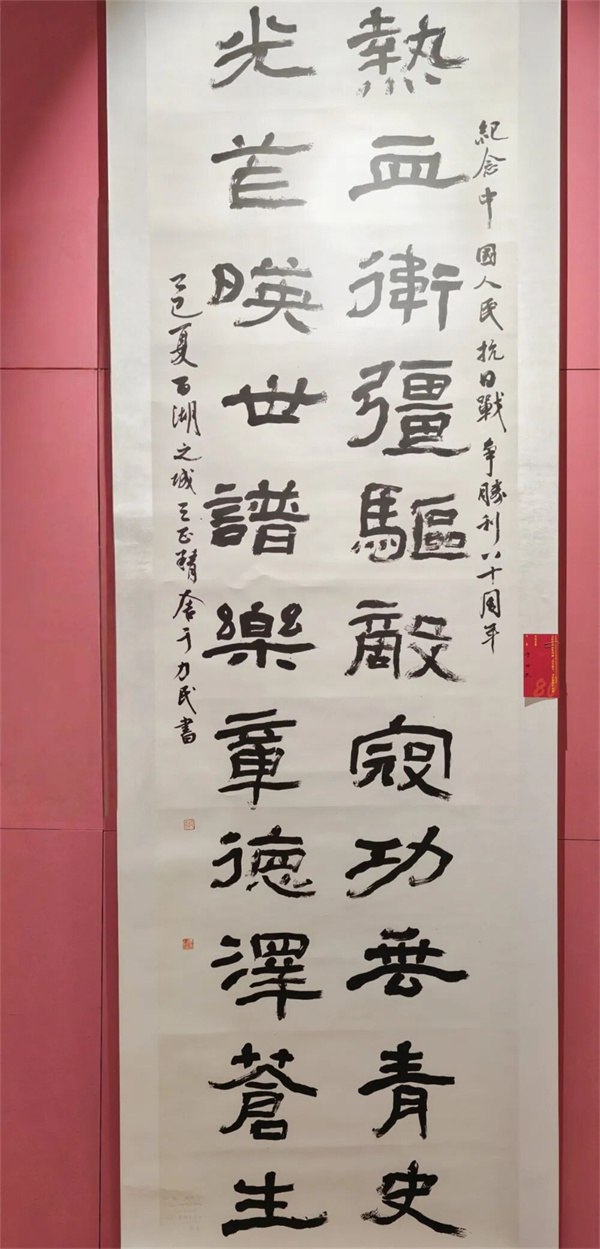 紀念中國人民抗日戰爭勝利八十周年
熱血衛彊驅敵寇功垂青史
光芒暎世譜樂章德澤蒼生
乙巳夏百湖之城三正精舍于力民書
80